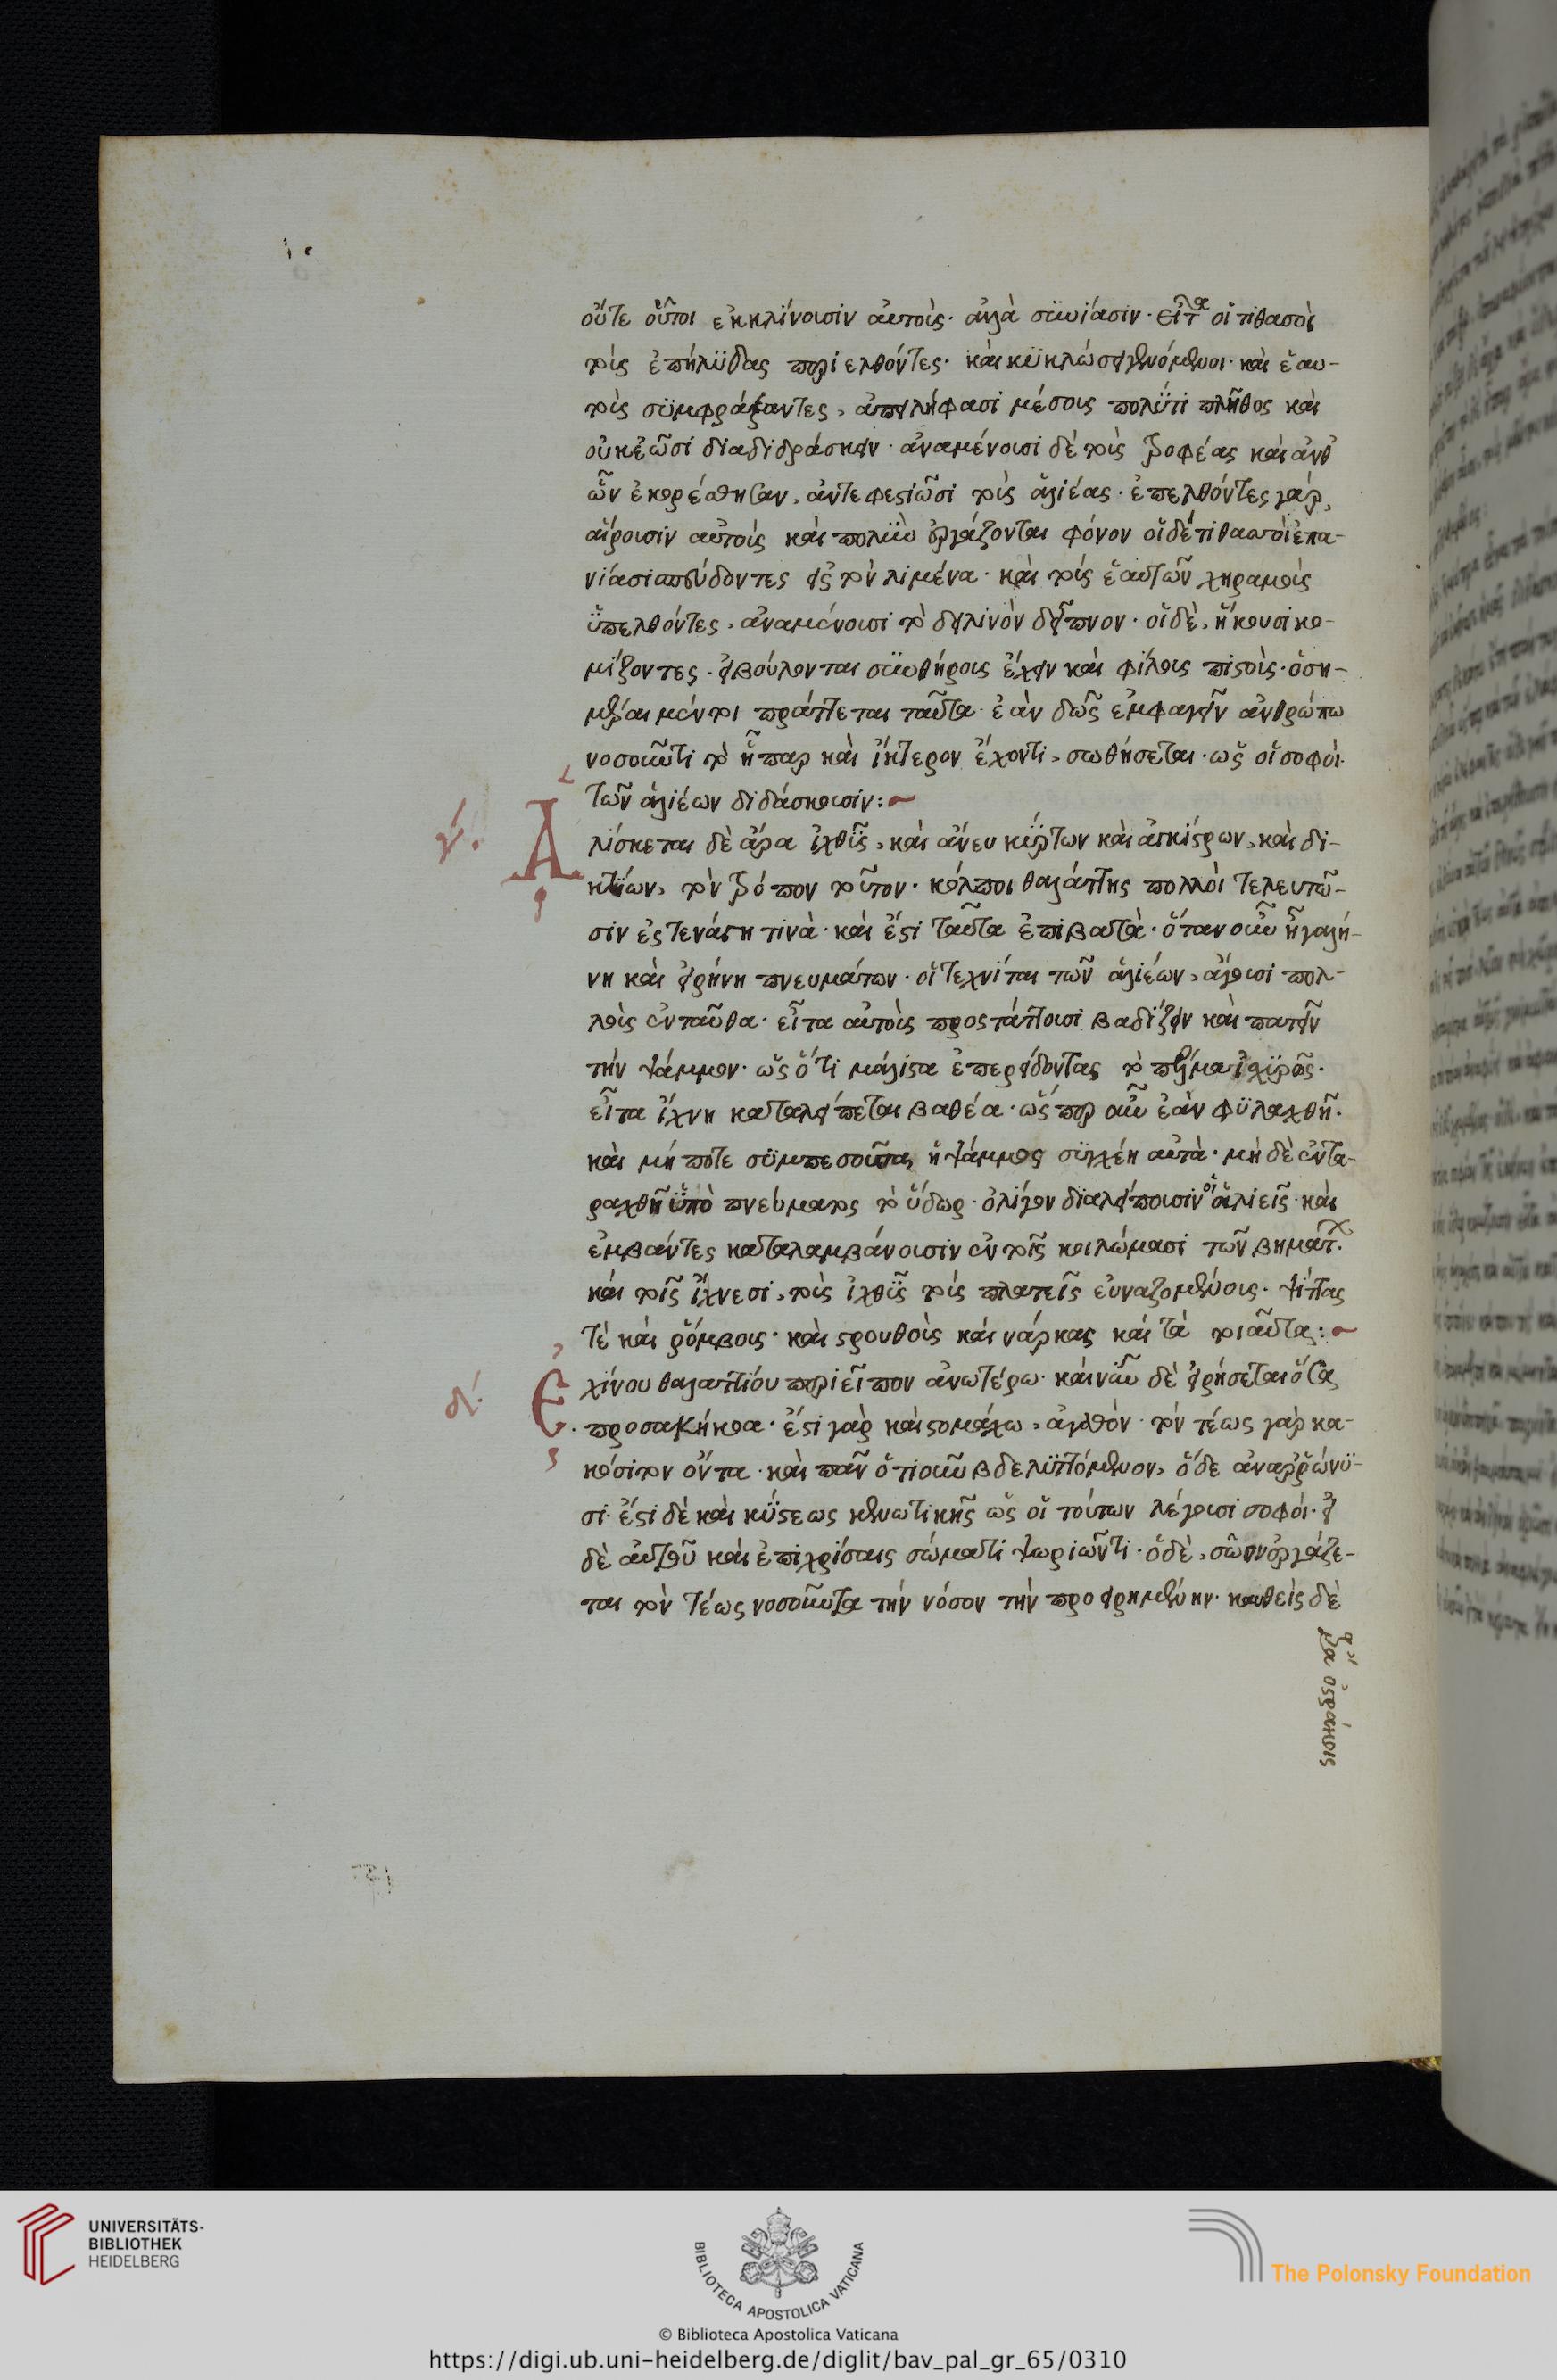 οὔτε οὗτοι ἐκκλίνουσιν αὐτοὺς· ἀλλὰ συνίασιν· εἶτα οἱ τιθασοὶ
τοὺς ἐπήλυδας περιελθόντες· καὶ κυκλώσει γενόμενοι· καὶ ἑαυ-
τοὺς συμφράξαντες, ἀπειλήφασι μέσους πολύ τι πλῆθος καὶ
οὐκ ἐῶσι διαδιδράσκειν· ἀναμένουσι δὲ τοὺς τροφέας καὶ ἀνθ
ὧν ἐκορέσθησαν, ἀντεφεστιῶσι τοὺς ἁλιέας· ἐπελθόντες γὰρ,
αἱροῦσιν αὐτοὺς καὶ πολὺν ἐργάζονται φόνον οἱ δέ τιθασοὶ ἐπα-
νίασι σπεύδοντες εἰς τὸν λιμένα· καὶ τοὺς ἑαυτῶν χηραμοὺς
ὑπελθόντες, ἀναμένουσι τὸ δειλινὸν δεῖπνον· οἱ δὲ, ἥκουσι κο-
μίζοντες· εἰ βούλονται συνθήρους ἔχειν καὶ φίλους πιστοὺς· ὁση-
μέραι μέντοι πράττεται ταῦτα· ἐὰν δῷς ἐμφαγεῖν ἀνθρώπω
νοσοῦντι τὸ ἧπαρ καὶ ἴκτερον ἔχοντι, σωθήσεται· ὡς οἱ σοφοὶ
τῶν ἁλιέων διδάσκουσιν:~
γ΄. Ἁλίσκεται δὲ ἄρα ἰχθῦς, καὶ ἄνευ κύρτων καὶ ἀγκίστρων, καὶ δι-
κτύων, τὸν τρόπον τοῦτον· κόλποι θαλάττης πολλοὶ τελευτῶ-
σιν ἐς τενάγη τινὰ· καὶ ἔστι ταῦτα ἐπιβατὰ· ὅταν οὖν ἦ γαλή-
νη καὶ εἰρήνη πνευμάτων· οἱ τεχνίται τῶν ἁλιέων, ἄγουσι πολ-
λοὺς ἐνταῦθα· εἶτα αὐτοὺς προστάττουσι βαδίζειν καὶ πατεῖν
τὴν ψάμμον· ὡς ὅτι μάλιστα ἐπερείδοντας τὸ πέλμα ἰσχυρῶς·
εἶτα ἴχνη καταλείπεται βαθέα· ὥσπερ οὖν ἐὰν φυλαχθῆ·
καὶ μή ποτε συμπεσοῦσα ἡ ψάμμος συγχέη αὐτὰ· μὴ δὲ ἐντα-
ραχθῆ ὑπὸ πνεύματος τὸ ὕδωρ· ὀλίγον διαλείπουσιν οἱ ἁλιεῖς· καὶ
ἐμβάντες καταλαμβάνουσιν ἐν τοῖς κοιλώμασι τῶν βημάτων·
καὶ τοῖς ἴχνεσι, τοὺς ἰχθῦς τοὺς πλατεῖς εὐναζομένους· ψίττας
τὲ καὶ ῥόμβους· καὶ στρουθοὺς καὶ νάρκας καὶ τὰ τοιαῦτα:~
δ΄. Ἐχίνου θαλαττίου περι εἶπον ἀνωτέρω· καὶ νῦν δὲ εἰρήσεται ὅσα
προσακήκοα· ἔστι γὰρ καὶ στομάχω, ἀγαθὸν· τὸν τέως γὰρ κα-
κόσιτον ὄντα· καὶ πᾶν ὁτιοῦν βδελυττόμενον, ὅδε ἀναρρώνυ-
σι· ἔστι δὲ καὶ κύστεως κενωτικῆς ὡς οἱ τούτων λέγουσι σοφοὶ· εἰ
δὲ αὐτοῦ καὶ ἐπιχρίσαις σώματι ψωριῶντι· ὁ δὲ, σῶον ἐργάζε-
ται τὸν τέως νοσοῦντα τὴν νόσον τὴν προειρημένην· καυθεὶς δὲ
ὀστράκοις
UNIVERSITÄTS-
BIBLIOTHEK
HEIDELBERG
BIBLIOTECA APOSTOLICA VATICANA
The Polonsky Foundation
© Biblioteca Apostolica Vaticana
https://digi.ub.uni-heidelberg.de/diglit/bav_pal_gr_65/0310